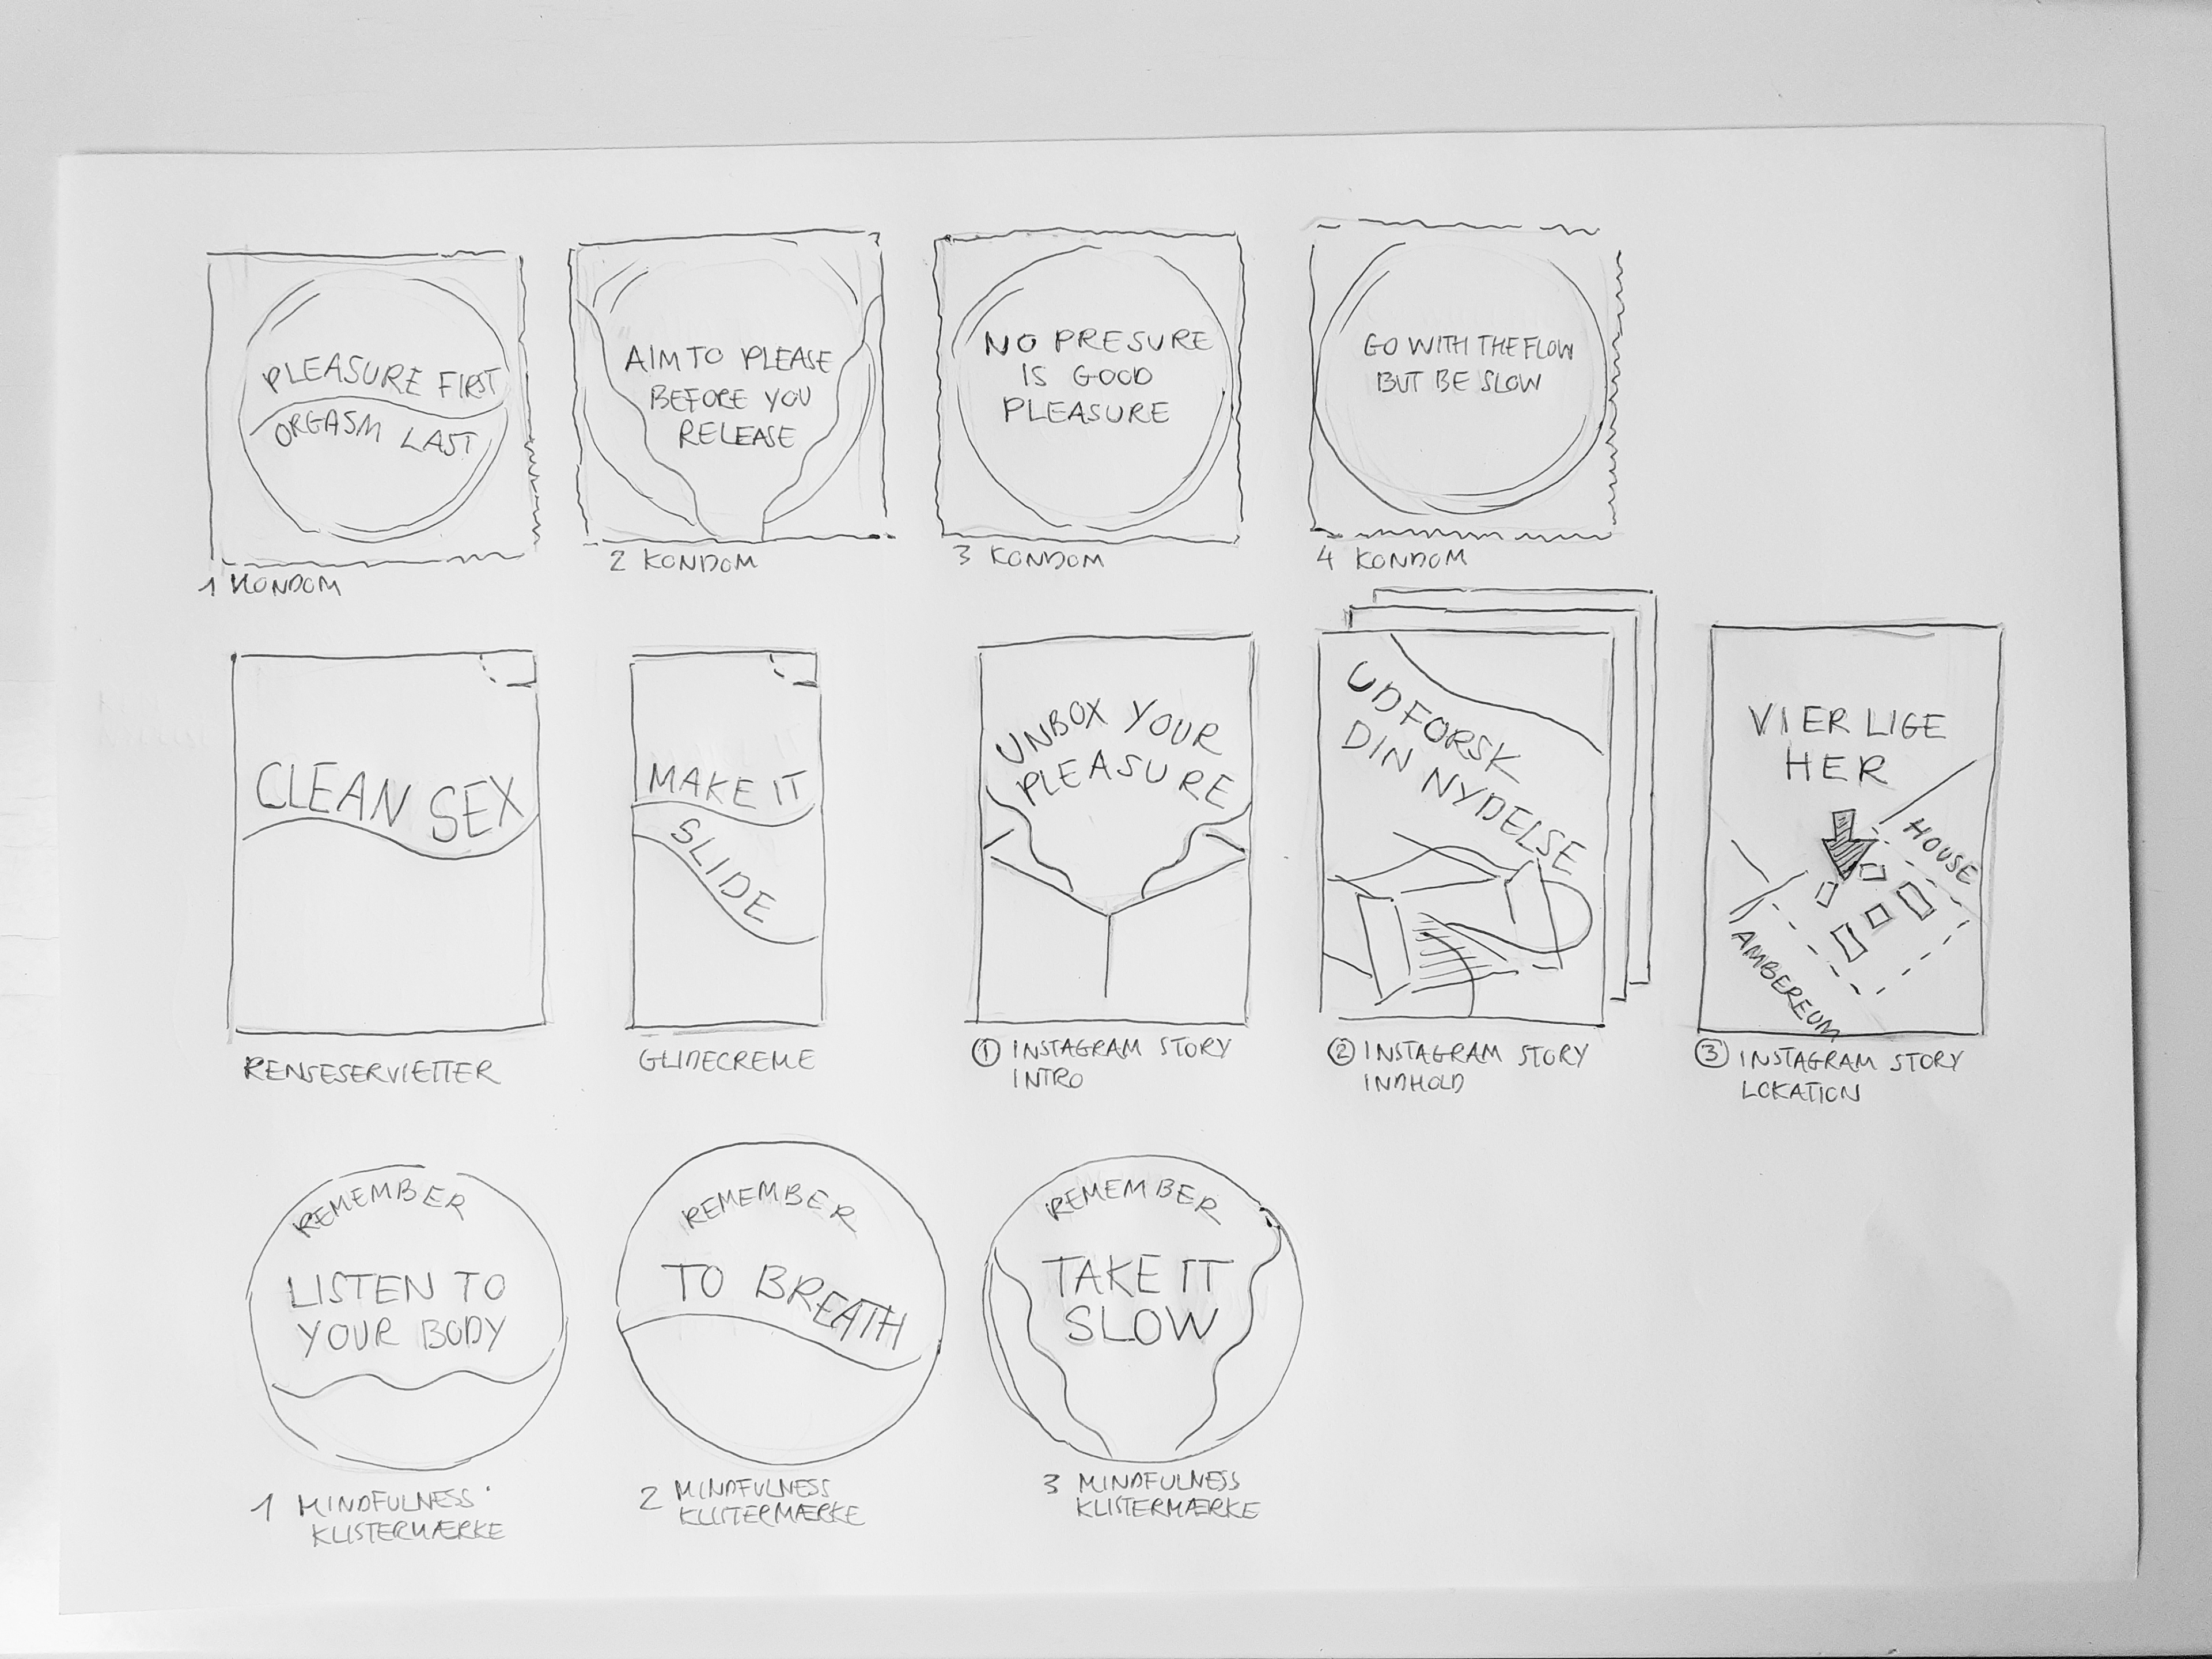 PLEASURE FIRST
ORGASM LAST
1 KONDOM
AIM TO PLEASE
BEFORE YOU
RELEASE
2 KONDOM
NO PRESURE
IS GOOD
PLEASURE
3 KONDOM
GO WITH THE FLOW
BUT BE SLOW
4 KONDOM
CLEAN SEX
RENSESERVIETTER
MAKE IT
SLIDE
GLIDECREME
UNBOX YOUR
PLEASURE
1 INSTAGRAM STORY
INTRO
UDFORSK
DIN NYDELSE
2 INSTAGRAM STORY
INDHOLD
VI ER LIGE
HER
HOUSE
AMBEREUM
3 INSTAGRAM STORY
LOKATION
REMEMBER
LISTEN TO
YOUR BODY
1 MINDFULNESS
KLISTERMÆRKE
REMEMBER
TO BREATH
2 MINDFULNESS
KLISTERMÆRKE
REMEMBER
TAKE IT
SLOW
3 MINDFULNESS
KLISTERMÆRKE